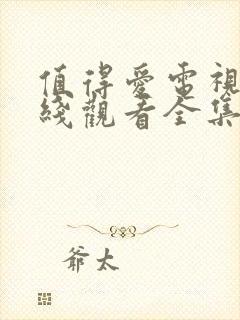 值得愛電視
綫觀看全集
爺太